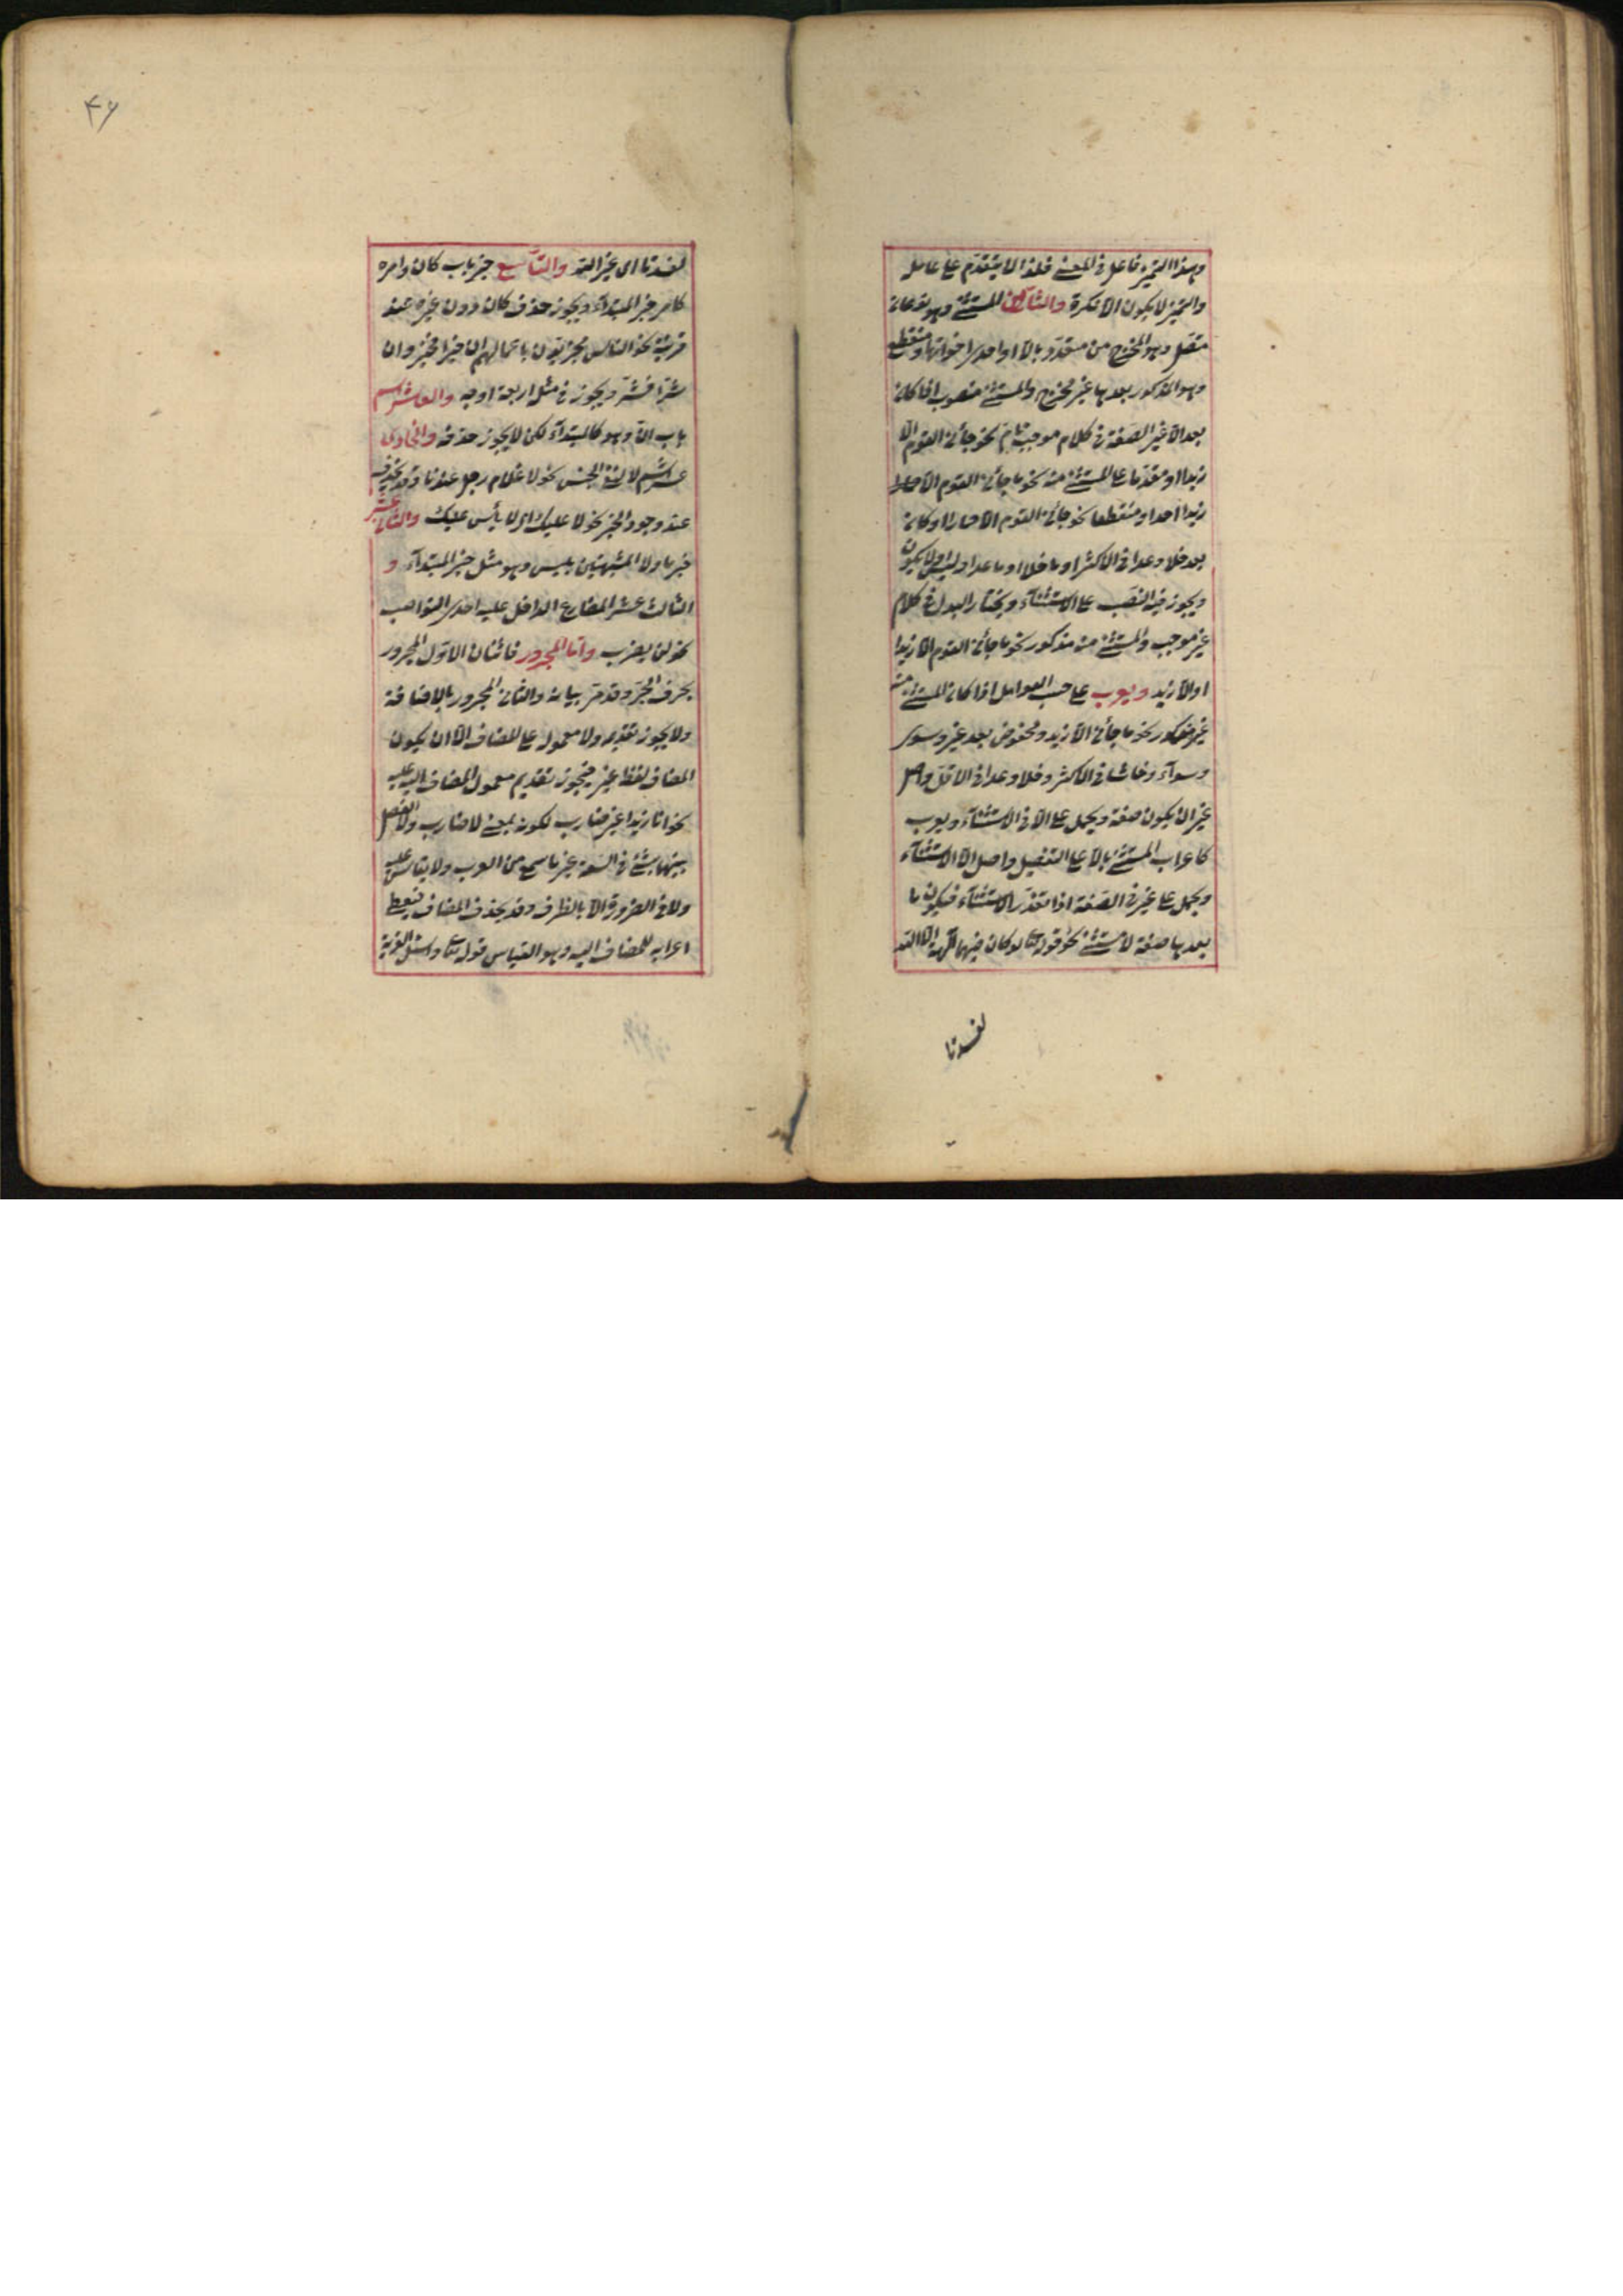 وهذا التميز فاعل فى المعنى فلهذا لا يتقدّم على عامله
والتميز لا يكون الا نكرة والثامن المستثنى وهو نوعان
متصل وهو المخرج من متعدّد بالّا او احدى اخواتها ومنقطع
وهو المذكور بعدها غير مخرج والمستثنى منصوب اذا كان
بعد الّا غير الصّفة فى كلام موجب تامّ نحو جائنى القوم الّا
زيدا او متقدّما على المستثنى منه نحو ما جائنى القوم الّا
زيدا احد او منقطعا نحو جائنى القوم الّا حمارا او كان
بعد خلا وعدا فى الاكثر او ما خلا او ما عدا او ليس ولا يكون
ويجوز فيه النصب على الاستثناء ويختار البدل فى كلام
غير موجب والمستثنى منه مذكور نحو ما جائنى القوم الّا زيدا
او الّا زيد ويعرب على حسب العوامل اذا كان المستثنى منه
غير مذكور نحو ما جائنى الّا زيد ومخفوض بعد غير وسوى
وسواء وحاشا فى الاكثر وخلا وعدا فى الاقلّ واصل
غير ان يكون صفة ويحمل على الّا فى الاستثناء ويعرب
كاعراب المستثنى بالّا على التفصيل واصل الّا الاستثناء
ويحمل على غير فى الصّفة اذا تعذّر الاستثناء فيكون ما
بعدها صفة لا مستثنى نحو قوله تعا لو كان فيهما آلهة الّا الله
لفسدتا
۴۶
لفسدتا اى غير الله والتاسع خبر باب كان وامره
كامر خبر المبتدأ ويجوز حذف كان دون غيره عند
قرينة نحو الناس مجزيّون باعمالهم ان خيرا فخير وان
شرّا فشرّ ويجوز فى مثله اربعة اوجه والعاشر اسم
باب انّ وهو كالمبتدأ لكن لا يجوز حذفه والحادى
عشر اسم لا لنفى الجنس نحو لا غلام رجل عندنا وقد يحذف
عند وجود الخبر نحو لا عليك اى لا بأس عليك والثانى عشر
خبر ما ولا المشبهتين بليس وهو مثل خبر المبتدأ و
الثالث عشر المضارع الداخل عليه احدى النواصب
نحو لن يضرب وامّا المجرور فاثنان الاوّل المجرور
بحرف الجرّ وقد مرّ بيانه والثانى المجرور بالاضافة
ولا يجوز تقديمه ولا معموله على المضاف الّا ان يكون
المضاف لفظ غير فيجوز تقديم معمول المضاف اليه عليه
نحو انا زيدا غير ضارب لكونه بمعنى لا ضارب ولا الفصل
بينهما بشئ فى السعة غير ما سمع من العرب ولا يقاس عليه
ولا فى الضرورة الّا بالظرف وقد يحذف المضاف فيعطى
اعرابه للمضاف اليه وهو القياس قوله تعا واسئل القرية